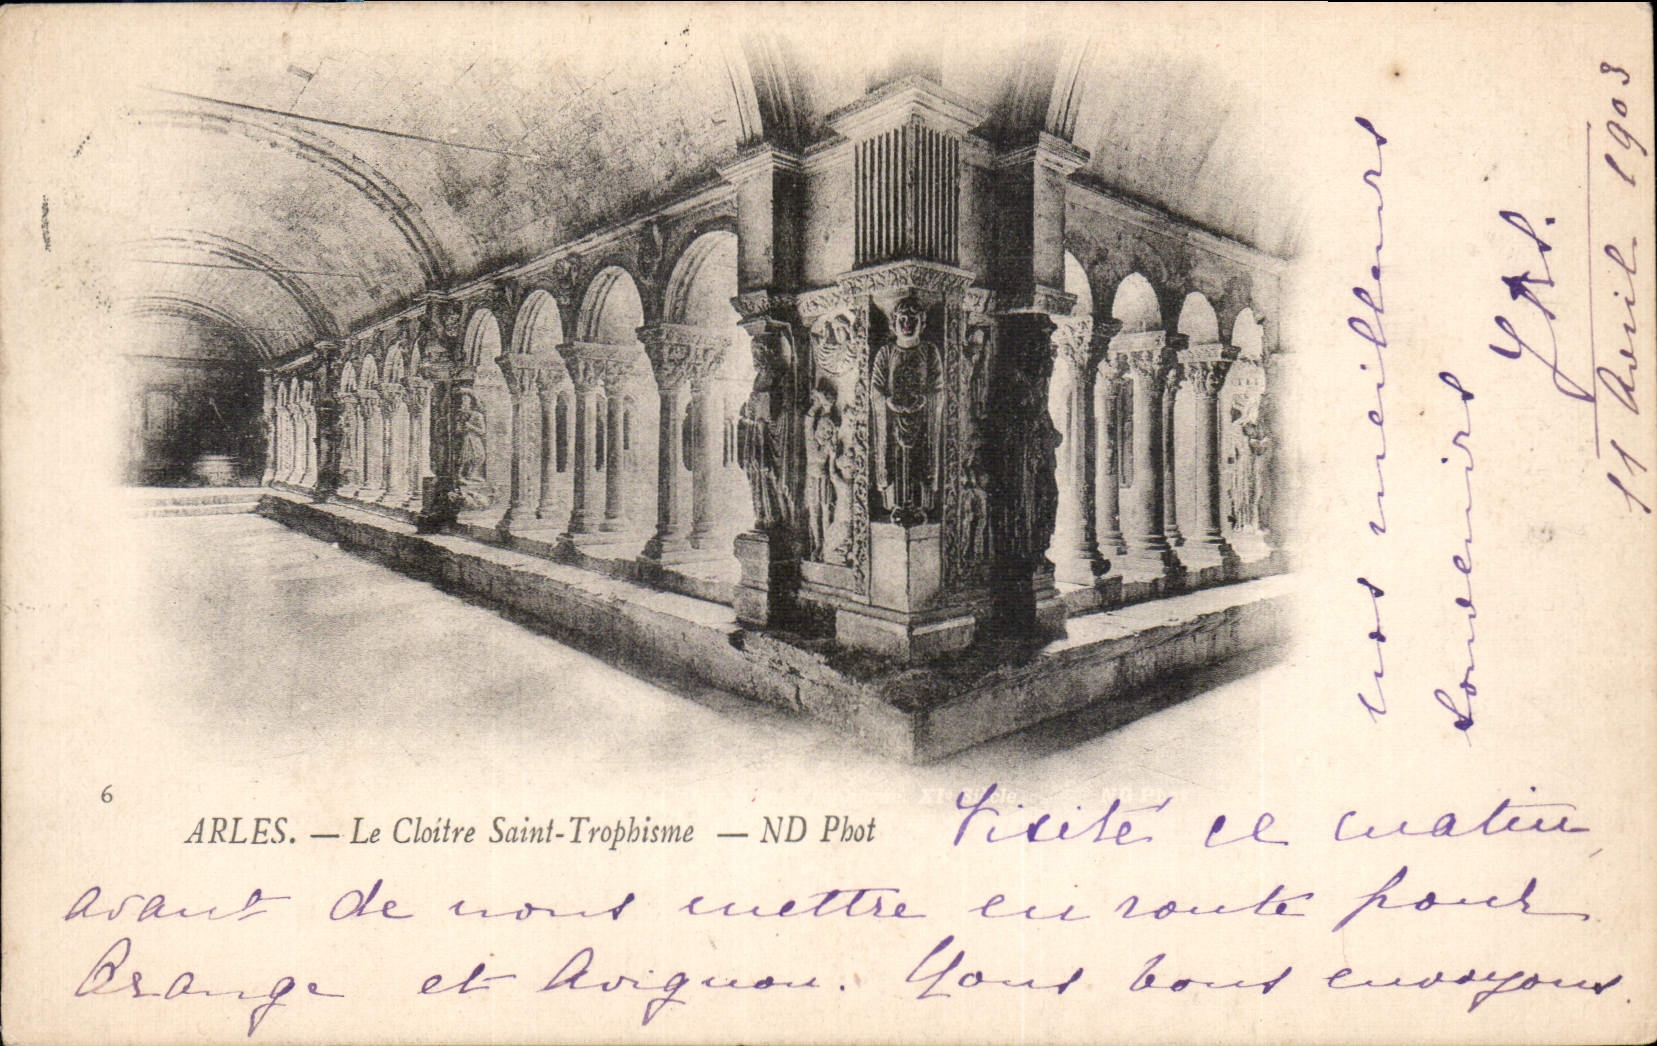 6
ARLES. — Le Cloître Saint-Trophisme — ND Phot
XIe Siècle
ND Phot
Visité ce matin,
avant de nous mettre en route pour
Orange et Avignon. Nous vous envoyons
nos meilleurs
souvenirs
11 Avril 1903